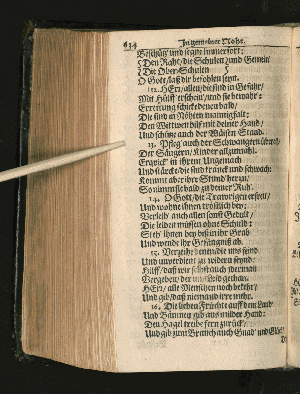 634 In gemeiner Noht.
Beschütz und segne immerfort:
Den Raht / die Schulen / und Gemein /
Die Ober-Schulen
O Gott / laß dir befohlen seyn.
12. HErr / allen / die sind in Gefahr /
Mit Hülff erschein / und sie bewahr:
Errettung schick denen bald /
Die sind in Nöhten mannigfalt:
Den Wittwen hilf mit deiner Hand /
Und schütze auch der Wäisen Stand.
13. Pfleg' auch der Schwangern
Der Säugern / Kinder allzumahl.
Erquick' in ihrem Ungemach
Und stärcke / die sind kranck und schwach:
Kommt aber ihre Stund herzu /
So nimm sie bald zu deiner Ruh.
14. O Gott / die Traurigen erfreu /
Und wohne ihnen tröstlich bey:
Verleih' auch allen sonst Gedult /
Die leiden müssen ohne Schuld:
Steh' ihnen bey biß in ihr Grab
Und wende ihr Gefängnüß ab.
15. Verzeihe denen / die uns feind
Und unverdient zu wider seynd:
Hilff / daß wir selbst auch jederman
Vergeben / der uns Leid gethan.
HErr / alle Menschen noch bekehr /
Und gib / daß niemand irre mehr.
16. Die lieben Früchte auff dem Land
Und Bäumen gib aus milder Hand:
Den Hagel treibe fern zurück /
Und gib zum Brauch auch Gnad' und Glück